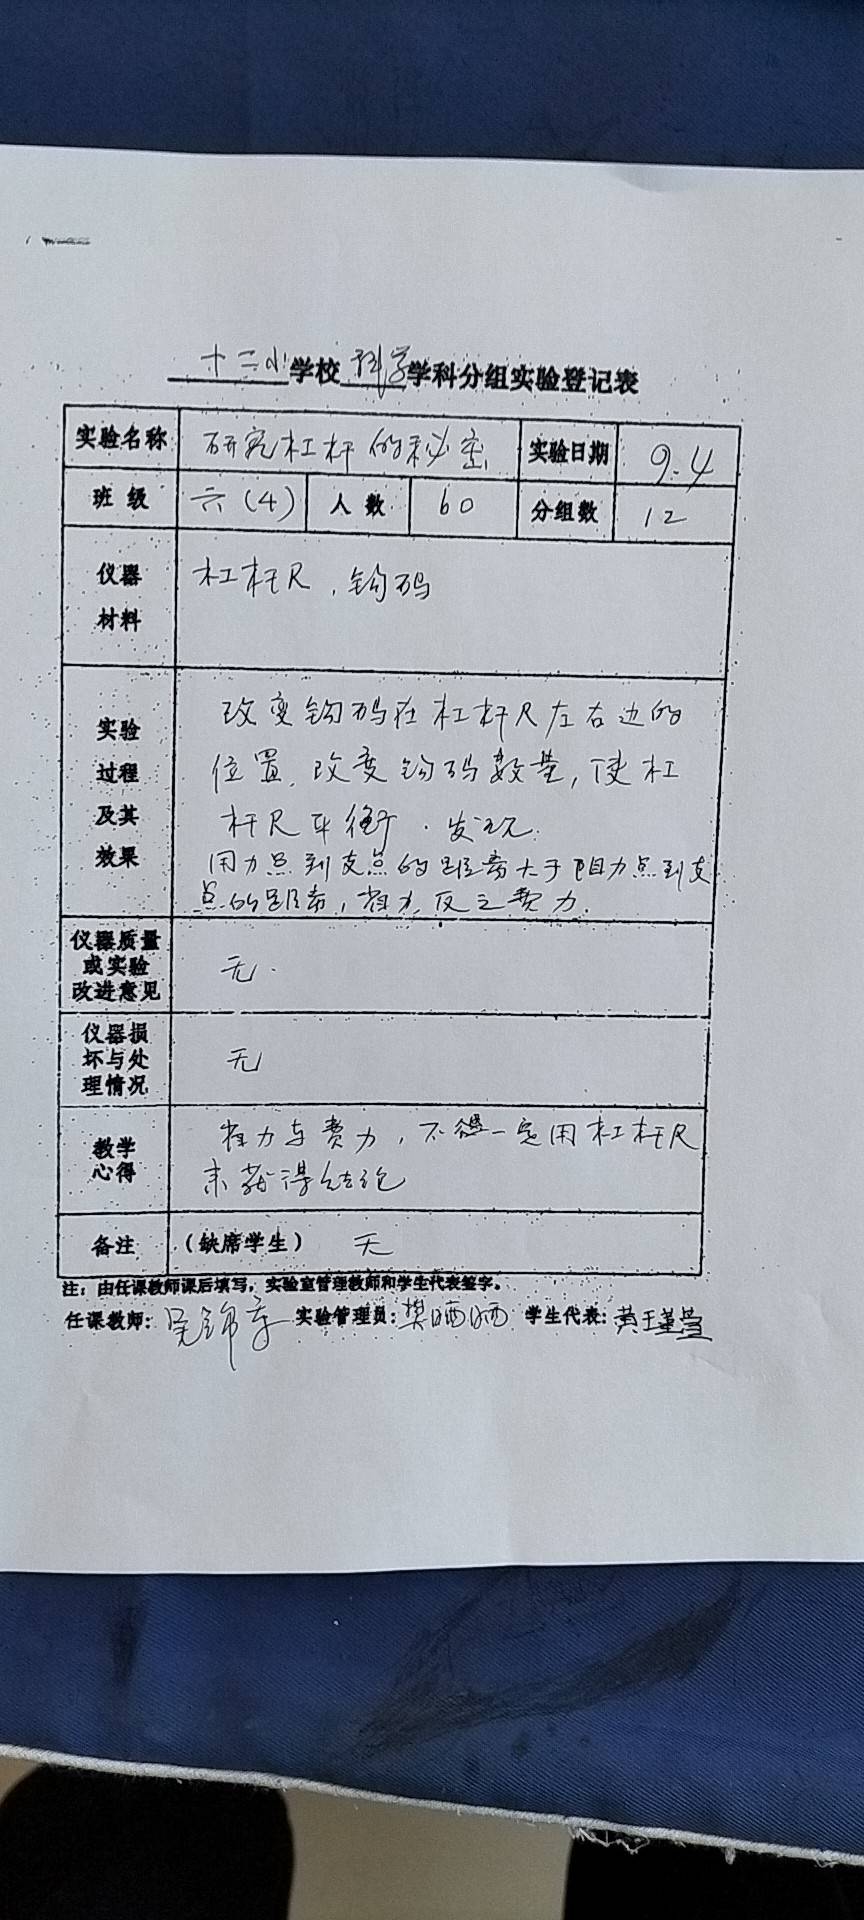 十二小学校 科学学科分组实验登记表
实验名称 研究杠杆的秘密 实验日期 9.4
班级 六(4) 人数 60 分组数 12
仪器 杠杆尺，钩码
材料
改变钩码在杠杆尺左右边的
实验
位置，改变钩码数量，使杠
过程
杆尺平衡．发现：
及其
用力点到支点的距离大于阻力点到支
效果
点的距离，省力，反之费力．
仪器质量
或实验 无．
改进意见
仪器损
坏与处 无
理情况
省力与费力，不一定用杠杆尺
教学
心得
来获得结论
备注 （缺席学生） 无
注：由任课教师课后填写，实验室管理教师和学生代表签字。
任课教师： 实验管理员：樊晒晒 学生代表：黄王堇萱